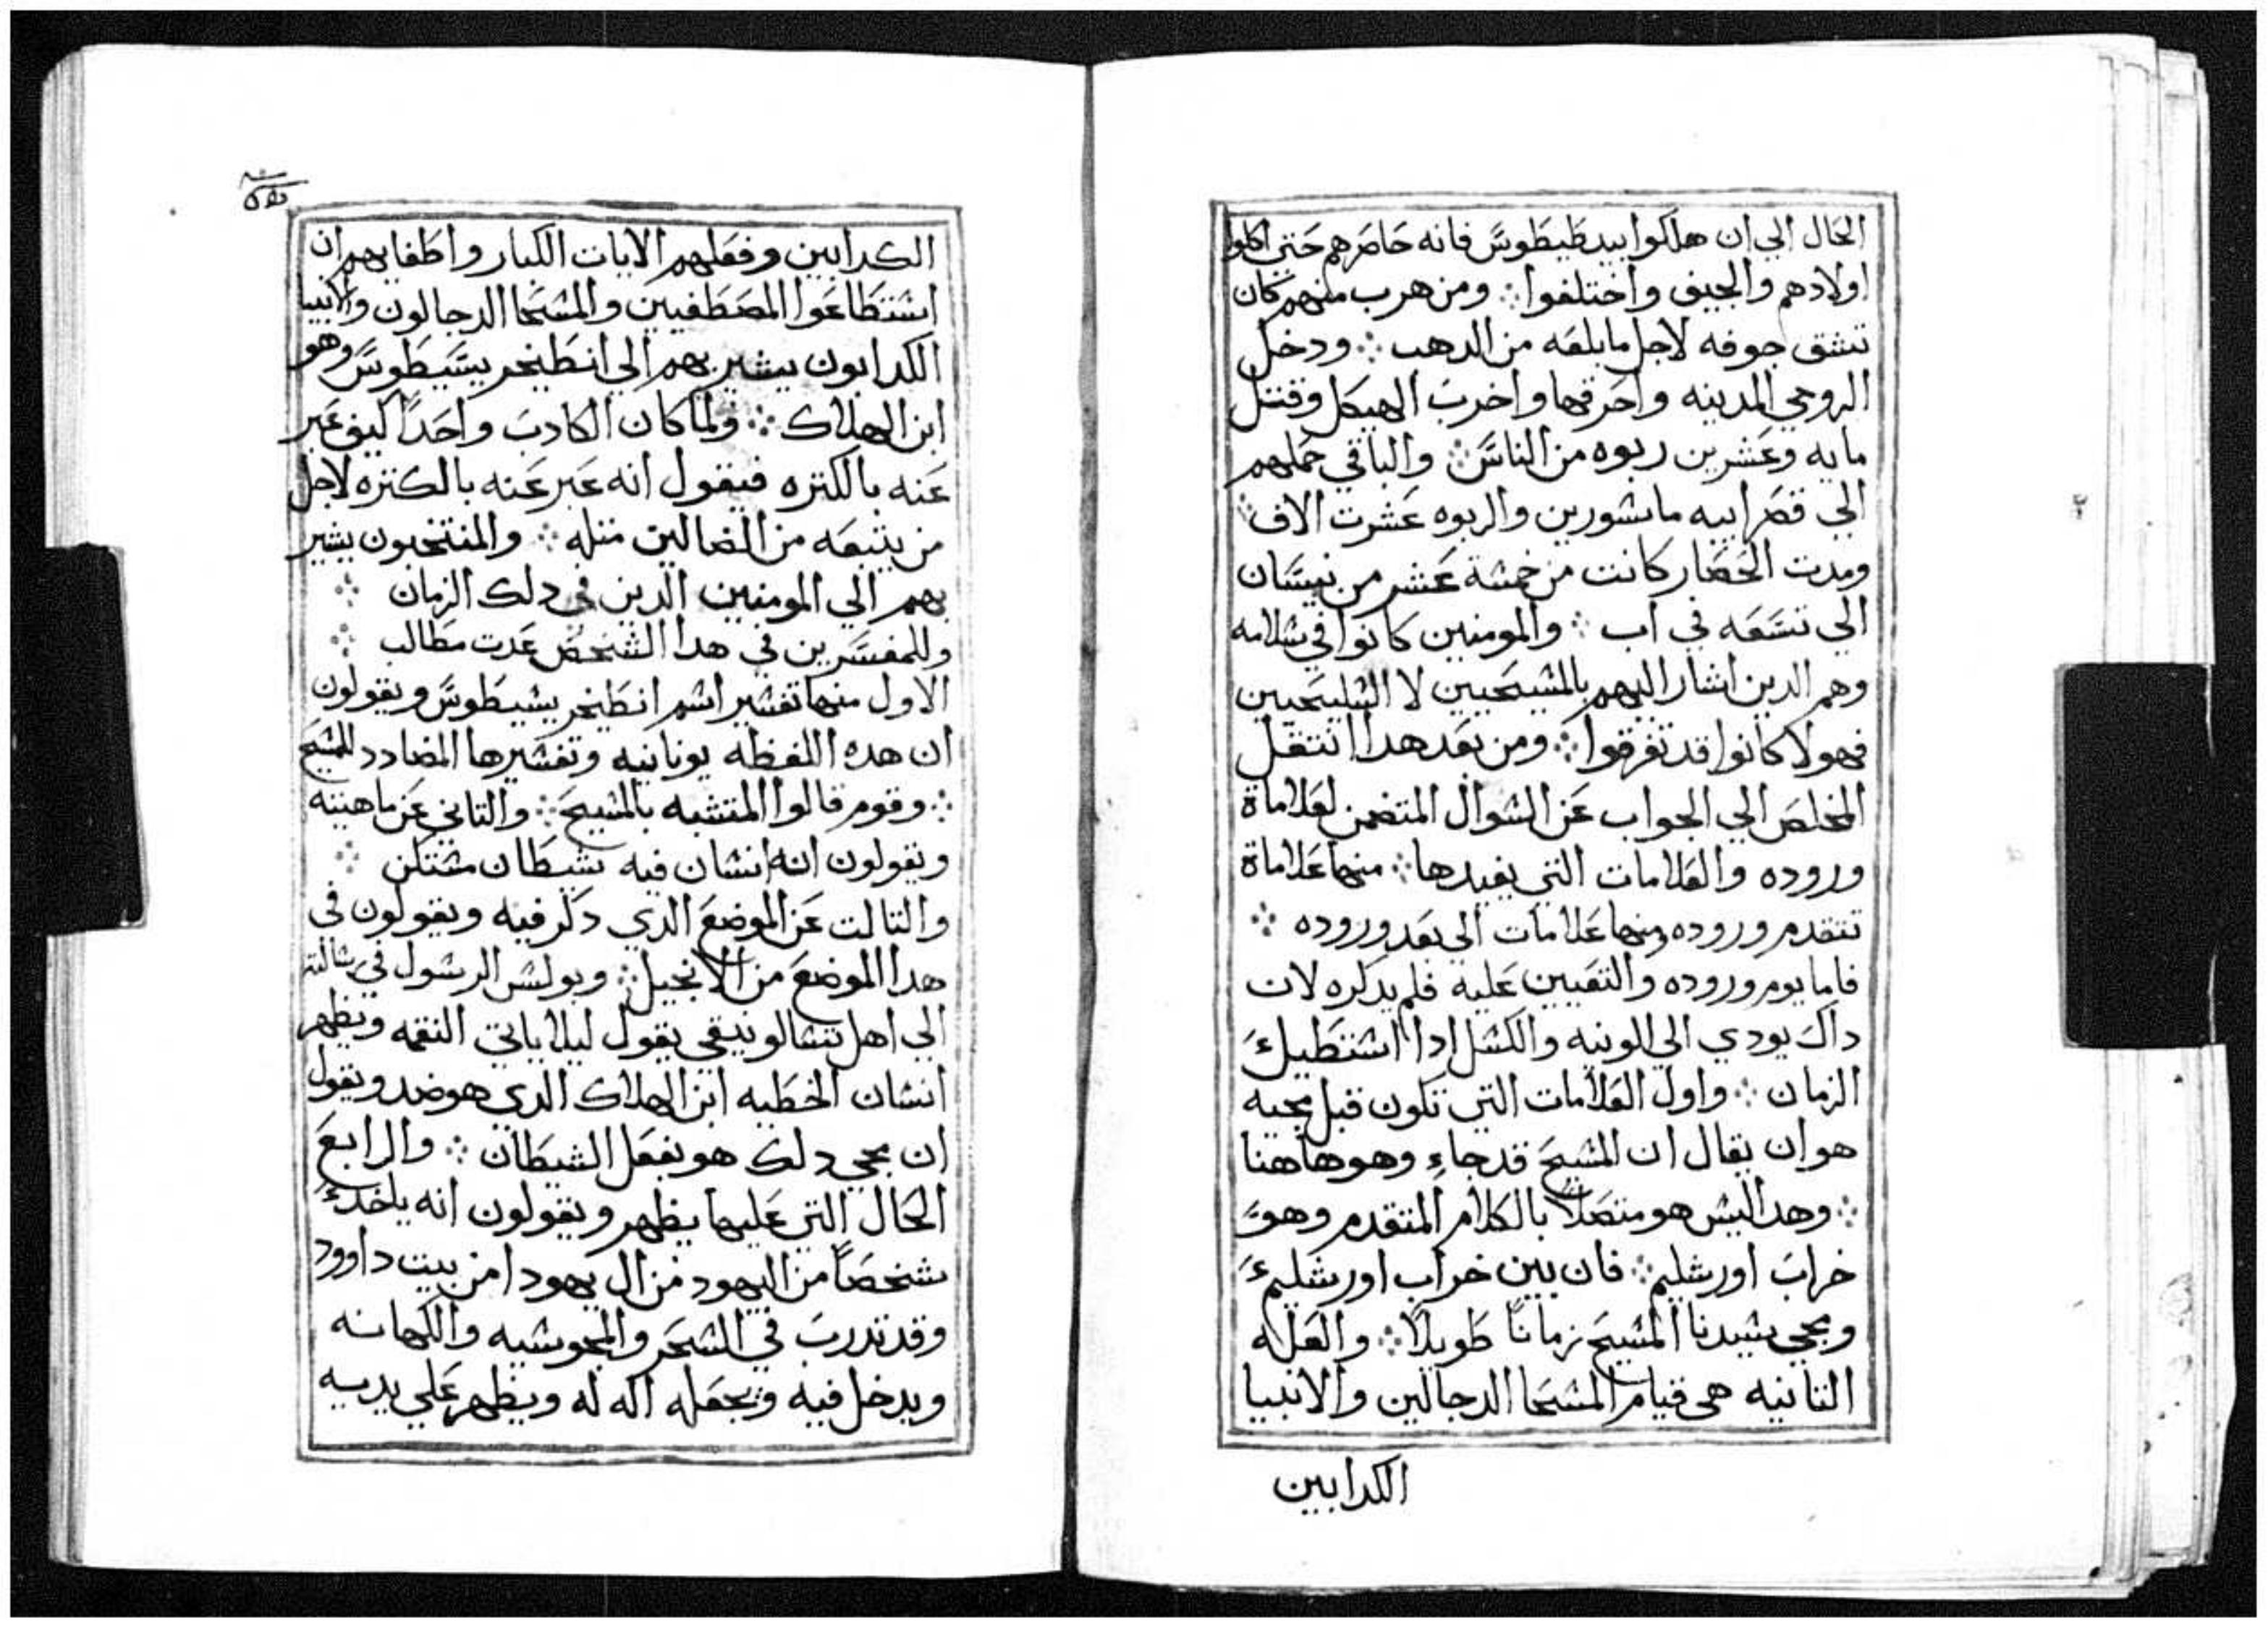 الحال الي ان هلكوا بيد طيطوس فانه حاصرهم حتي اكلوا
اولادهم والجيف واختلفوا ومن هرب منهم كان
تنشق جوفه لاجل مابلعه من الدهب ودخل
الرومي المدينه واحرقها واخرب الهيكل وقتل
مايه وعشرين ربوه من الناس والباقي حملهم
الي قصرابيه ماسورين والربوه عشرت الاف
ومدت الحصار كانت من خمسة عشر من نيسان
الي تسعه في اب والمومنين كانوا في سلامه
وهم الدين اشار اليهم بالمسيحيين لا السليحيين
فهولا كانوا قد تفرقوا ومن بعد هدا انتقل
المخلص الي الجواب عن السوال المتضمن لعلاماة
وروده والعلامات التي يفيدها منها علاماة
تتقدم وروده ومنها علامات الي بعد وروده
فاما يوم وروده والتعيين عليه فلم يدكره لان
داك يودي الي الونيه والكسل ادا استطيل
الزمان واول العلامات التي تكون قبل مجيه
هو ان يقال ان المسيح قد جاء وهو هاهنا
وهدا ليس هو متصلا بالكلام المتقدم وهو
خراب اورشليم فان بين خراب اورشليم
ومجي سيدنا المسيح زمانا طويلا والعله
التانيه هي قيام المسحا الدجالين والانبيا
الكدابين
الكدابين وفعلهم الايات الكبار واطغايهم ان
استطاعوا المصطفيين والمسحا الدجالون والانبيا
الكدابون يشير بهم الي انطيخريسيطوس وهو
ابن الهلاك ولما كان الكادب واحدا كيف عبر
عنه بالكتره فيقول انه عبر عنه بالكتره لاجل
من يتبعه من الضالين متله والمنتخبون يشير
بهم الي المومنين الدين في دلك الزمان
وللمفسرين في هدا الشخص عدت مطالب
الاول منها تفسير اسم انطيخريسيطوس ويقولون
ان هده اللفظه يونانيه وتفسيرها المضادد للمسيح
وقوم قالوا المتشبه بالمسيح والتاني عن ماهيته
ويقولون انه انسان فيه شيطان متكن
والتالت عن الموضع الدي دكر فيه ويقولون في
هدا الموضع من الانجيل وبولس الرسول في رسالته
الي اهل تسالونيقي يقول ليلا ياتي النقمه ويظهر
انسان الخطيه ابن الهلاك الدي هو ضد ويقول
ان مجي دلك هو بفعل الشيطان والرابع
الحال التي عليها يظهر ويقولون انه ياخد
شخصا من اليهود من ال يهودا من بيت داوود
وقد تدرب في السحر والمجوسيه والكهانه
ويدخل فيه ويجعله اله له ويظهر علي يديه